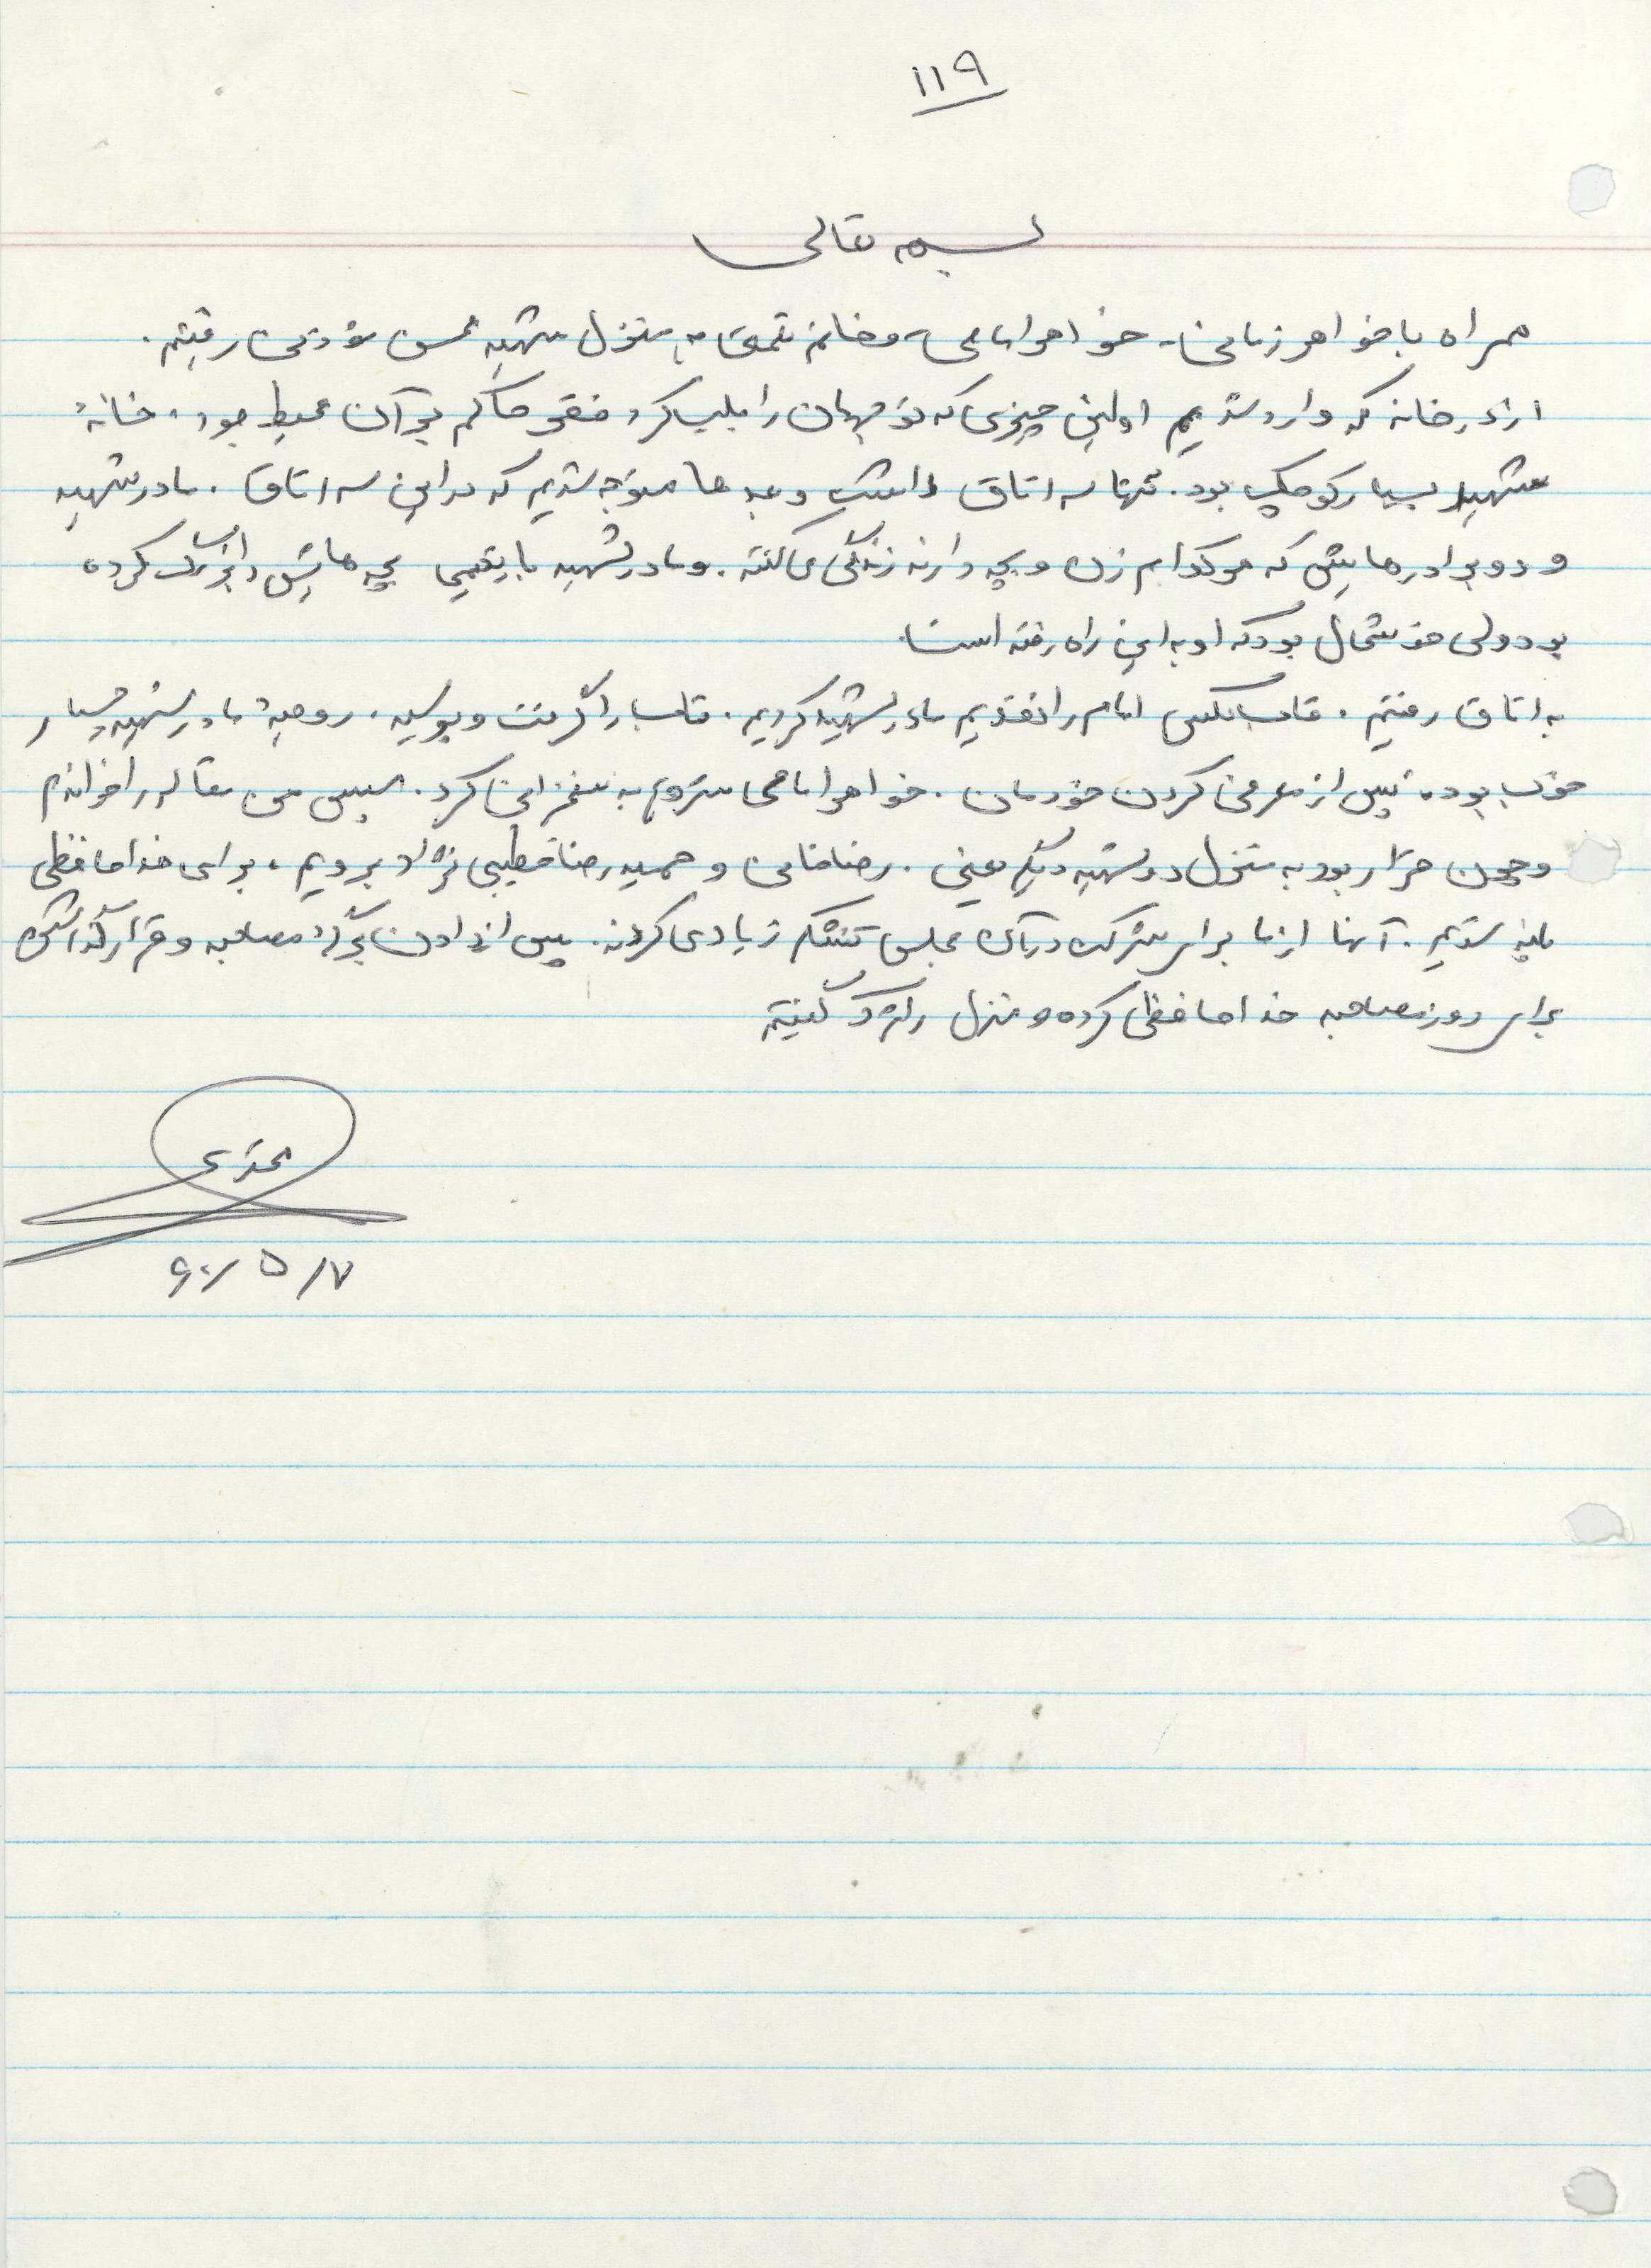 ۱۱۹
بسمه تعالی
همراه با خواهر زمانی - خواهر امامی و خانم به منزل شهید محسن رفتیم.
از در خانه که وارد شدیم اولین چیزی که توجهمان را جلب کرد فقر حاکم بر آن محیط بود. خانهٔ
شهید بسیار کوچک بود. تنها سه اتاق داشت و بعدها متوجه شدیم که در این سه اتاق. مادر شهید
و دو برادرهایش که هر کدام زن و بچه دارند زندگی می‌کنند. و مادر شهید با یتیمی بچه‌هایش را بزرگ کرده
بود ولی خوشحال بود که او به این راه رفته است.
به اتاق رفتیم. قاب عکس امام را تقدیم مادر شهید کردیم. قاب را گرفت و بوسید. روحیهٔ مادر شهید بسیار
خوب بود. پس از معرفی کردن خودمان. خواهر امامی شروع به سخنرانی کرد. سپس من مقاله را خواندم
و چون قرار بود به منزل دو شهید دیگر یعنی. رضا و حمیدرضا خطیبی نژاد برویم، برای خداحافظی
بلند شدیم. آنها از ما برای شرکت در آن مجلس تشکر زیادی کردند. پس از دادن برگهٔ مصاحبه و قرار گذاشتن
برای روز مصاحبه خداحافظی کرده و منزل را ترک گفتیم
۶۰/۵/۷